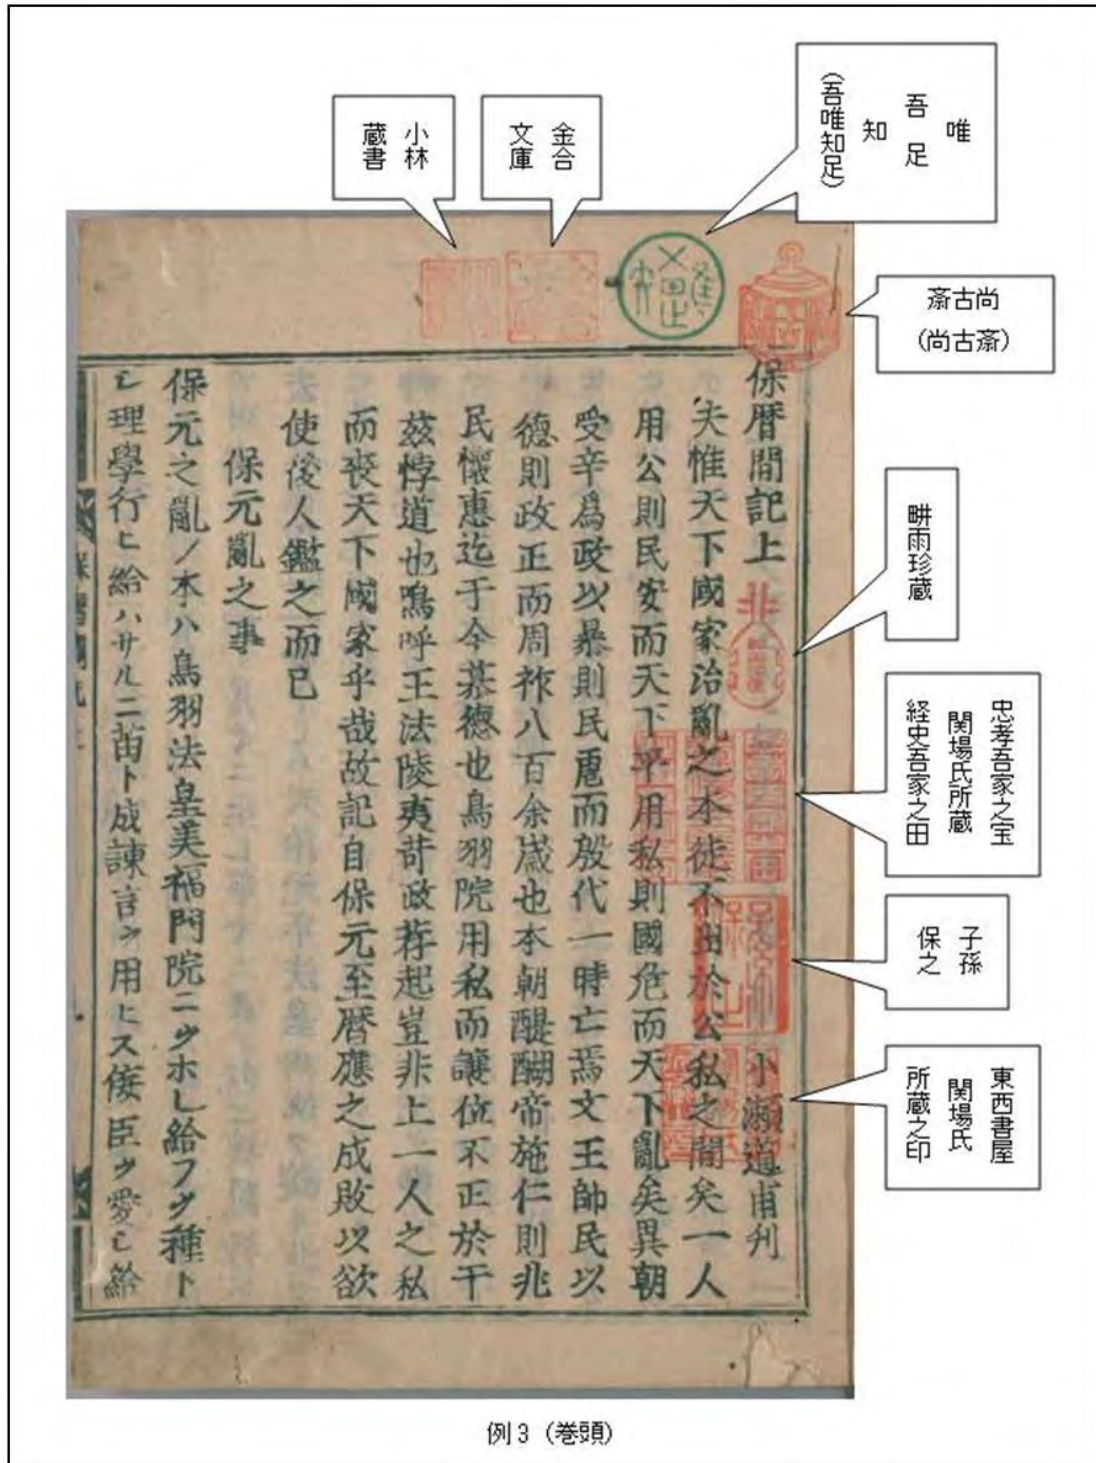 唯
吾 足
知
(吾唯知足)
金合
文庫
小林
蔵書
斎古尚
(尚古斎)
畊雨珍蔵
忠孝吾家之宝
関場氏所蔵
経史吾家之田
子孫
保之
東西書屋
関場氏
所蔵之印
保暦間記上
小瀬道甫刋
夫惟天下國家治亂之本徒不由於公私之間矣一人
用公則民安而天下平用私則國危而天下亂矣異朝
受辛爲政以暴則民㢠而殷代一時亡焉文王帥民以
德則政正而周祚八百余歳也本朝醍醐帝施仁則兆
民懷惠迄于今慕德也鳥羽院用私而讓位不正於干
茲悖道也嗚呼王法陵夷苛政荐起豈非上一人之私
而喪天下國家乎哉故記自保元至暦應之成敗以欲
使後人鑑之而已
保元亂之事
保元之亂ノ本ハ鳥羽法皇美福門院ニヲホレ給フヲ種ト
シ理學行ヒ給ハサルニ苗ト成諌言ヲ用ヒス倿臣ヲ愛シ給
例3 (巻頭)